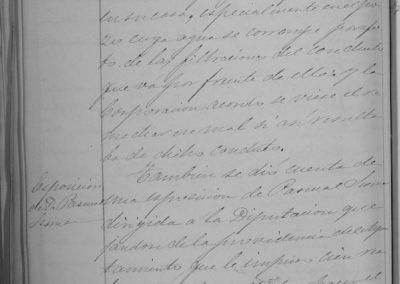 en su casa, especialmente en el po-
zo cuya agua se corrompe por efec-
to de las filtraciones del conducto
que vá por frente de ella: y la
Corporacion acordó se viese el re-
mediar ese mal si asi resulta-
ba de dicho conducto.
Exposicion
de D. Pascual
Tambien se dió cuenta de
una esposicion de Pascual
dirigida a la Diputacion que
jandose de la providencia del Ayun
tamiento que le impuso cien rs